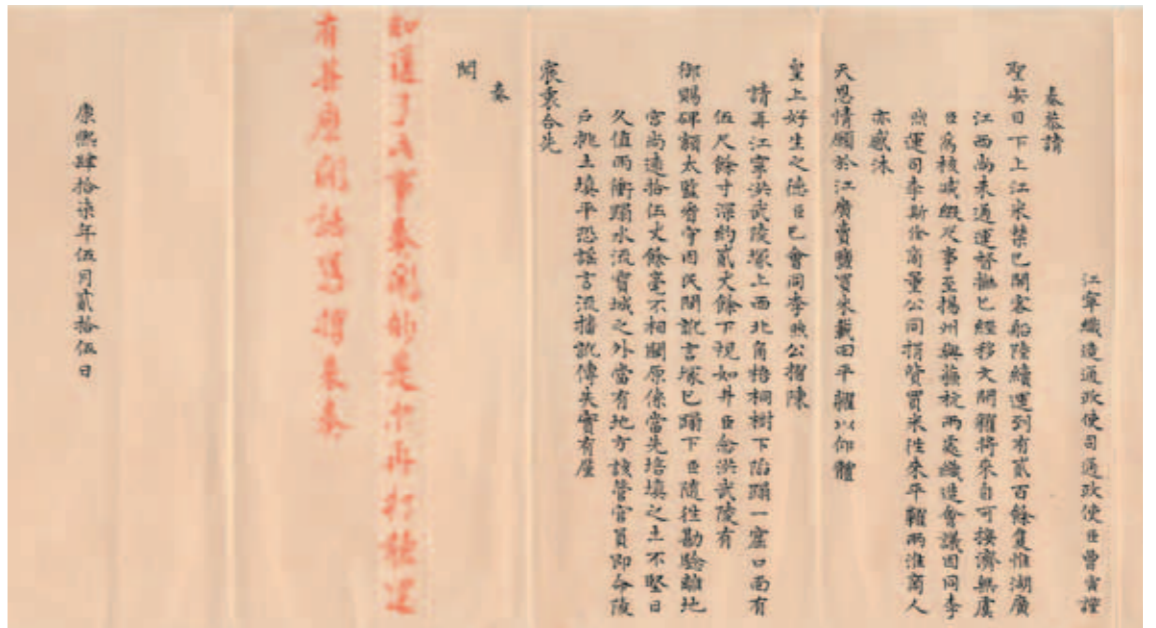 江寧織造通政使司通政使臣曹寅謹
奏恭請
聖安日下上江米禁已開客船陸續運到有貳百餘隻惟湖廣
江西尚未通運督撫已經移文開糴將來自可接濟無虞
臣為核減緞疋事至揚州與蘇杭兩處織造會議因同李
煦運司李斯佺商量公同捐貲買米往來平糶兩淮商人
亦感沐
天恩情願於江廣賣鹽買米載回平糶以仰體
皇上好生之德臣已會同李煦公摺陳
請再江寧洪武陵塚上西北角梧桐樹下陷蹋一窟口面有
伍尺餘寸深約貳丈餘下視如井臣念洪武陵有
御賜碑額太監看守因民間訛言塚已蹋下臣隨往勘驗離地
宮尚遠拾伍丈餘毫不相關原係當先培填之土不堅日
久值雨衝蹋水流寶城之外當有地方該管官員即令陵
戶挑土填平恐謠言流播訛傳失實有廑
宸衷合先
奏
聞
知道了此事奏聞的是尔再打聽還
有甚麼閒話寫摺來奏
康熙肆拾柒年伍月貳拾伍日